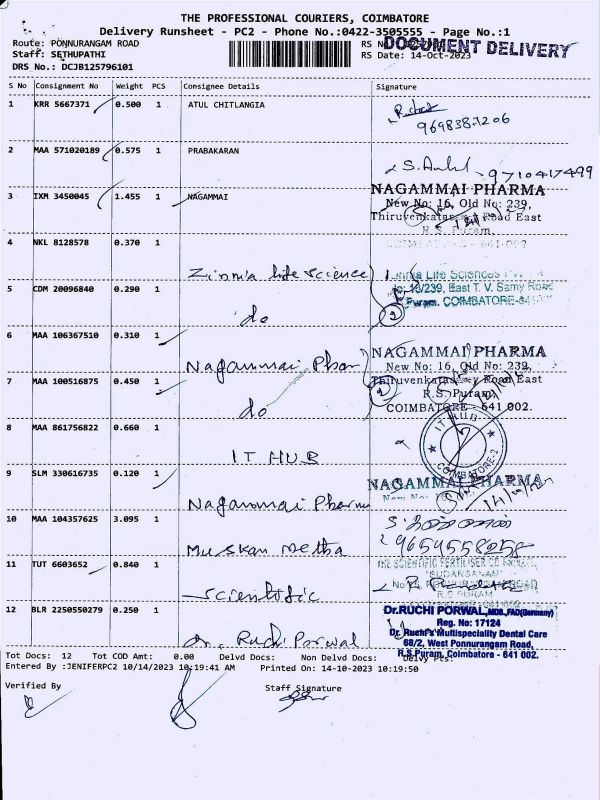 THE PROFESSIONAL COURIERS, COIMBATORE
Delivery Runsheet - PC2 - Phone No.:0422-3505555 - Page No.:1
Route: PONNURANGAM ROAD
RS No
DOCUMENT DELIVERY
Staff: SETHUPATHI
RS Date: 14-Oct-2023
DRS No.: DCJB125796101
S No Consignment No Weight PCS Consignee Details Signature
1 KRR 5667371 0.500 1 ATUL CHITLANGIA
2 MAA 571020189 0.575 1 PRABAKARAN
9710417499
3 IXM 3450045 1.455 1 NAGAMMAI
NAGAMMAI PHARMA
New No: 16, Old No: 239,
Road East
R.S. Puram,
4 NKL 8128578 0.370 1
Zinnia life science
Zinnia Life Sciences
13/239, East T. V. Samy Road
Puram, COIMBATORE-
5 CDM 20096840 0.290 1
do
2
6 MAA 106367510 0.310 1
Nagammai Phar
NAGAMMAI PHARMA
New No: 16, Old No: 239,
Road East
R.S. Puram,
COIMBATORE - 641 002.
7 MAA 100516875 0.450 1
do
2
8 MAA 861756822 0.660 1
IT HUB
IT HUB
COIMBATORE-2
9 SLM 330616735 0.120 1
Nagammai Pharma
NAGAMMAI PHARMA
10 MAA 104357625 3.095 1
Muskan metha
9654558258
11 TUT 6603652 0.840 1
Scientific
THE SCIENTIFIC FERTILISER CO
"SUDARSANAM"
R.S. PURAM
12 BLR 2250550279 0.250 1
Dr. Ruchi Porwal
Dr.RUCHI PORWAL,MDS.,FAD(Germany)
Reg. No: 17124
Dr. Ruchi's Multispeciality Dental Care
68/2, West Ponnurangam Road,
R.S.Puram, Coimbatore - 641 002.
Tot Docs: 12 Tot COD Amt: 0.00 Delvd Docs: Non Delvd Docs: Delvy Pts:
Entered By :JENIFERPC2 10/14/2023 10:19:41 AM Printed On: 14-10-2023 10:19:50
Verified By
Staff Signature